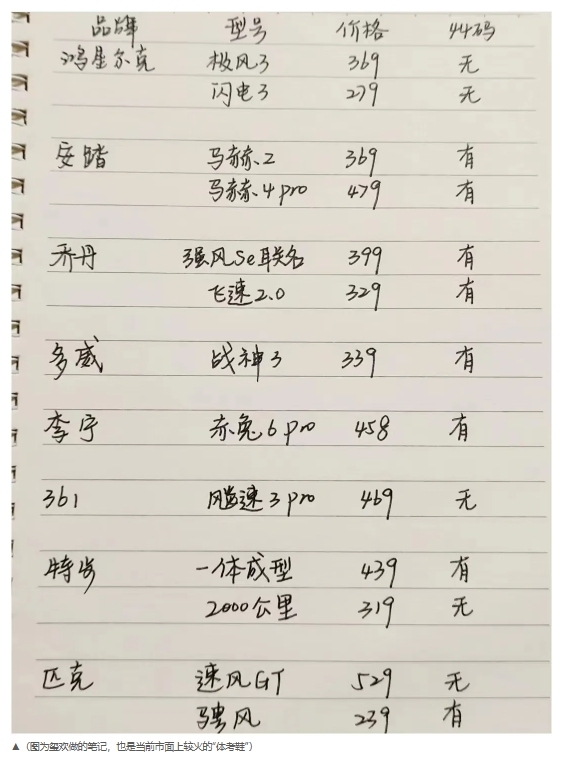 品牌 型号 价格 44码
鸿星尔克 极风3 369 无
闪电3 279 无
安踏 马赫2 369 有
马赫4pro 479 有
乔丹 强风Se联名 399 有
飞速2.0 329 有
多威 战神3 339 有
李宁 赤兔6pro 458 有
361 飚速3pro 469 无
特步 一体成型 439 有
2000公里 319 无
匹克 速风GT 529 无
骋风 239 有
▲（图为玺欢做的笔记，也是当前市面上较火的“体考鞋”）